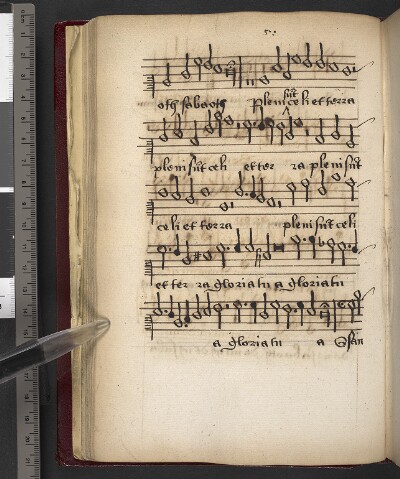 oth sabaoth pleni sūt celi et terra
pleni sūt celi et ter ra pleni sūt
celi et terra pleni sūt celi
et ter ra gloria tu a gloria tu
a gloria tu a Osan